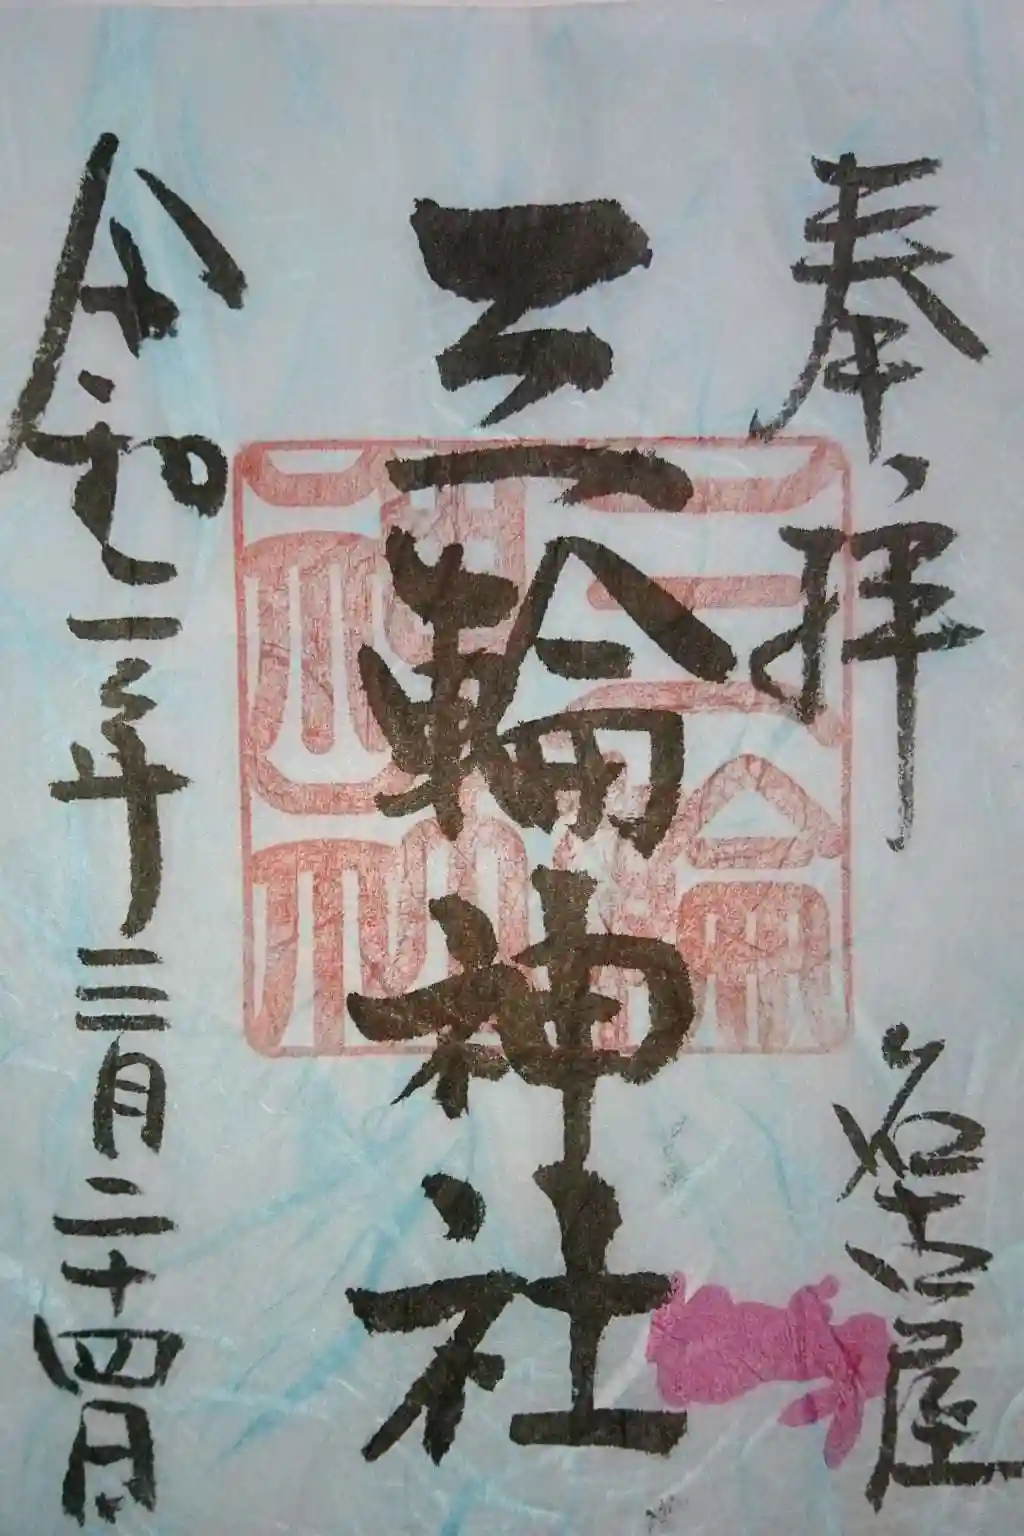 奉拝 名古屋
三輪神社
令和二年三月二十四日
三輪神社